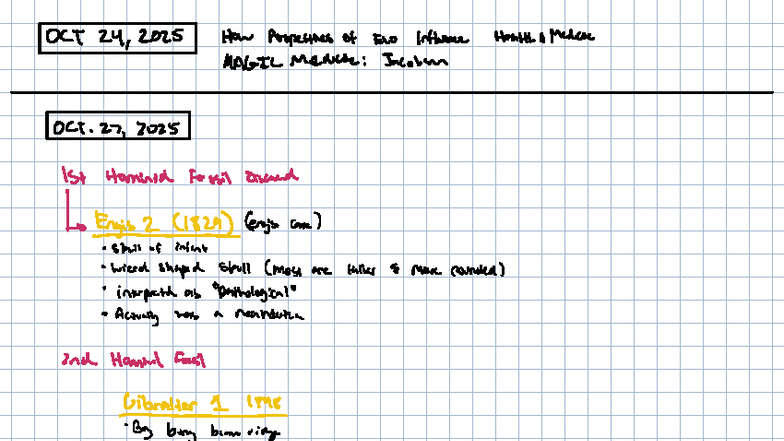 OCT 24, 2025
How Perspectives of Evo Influence Health & Medicine
MAGIC Medicine:
OCT. 27, 2025
1st Hominid Fossil Discovered
Engis 2 (1829) (engis cave)
• Skull of infant
• wierd shaped skull (most are taller & more rounded)
• interpreted as "pathological"
• Actually was a neandertal
2nd Hominid Fossil
Gibralter 1 1848
• Big bony brow ridge